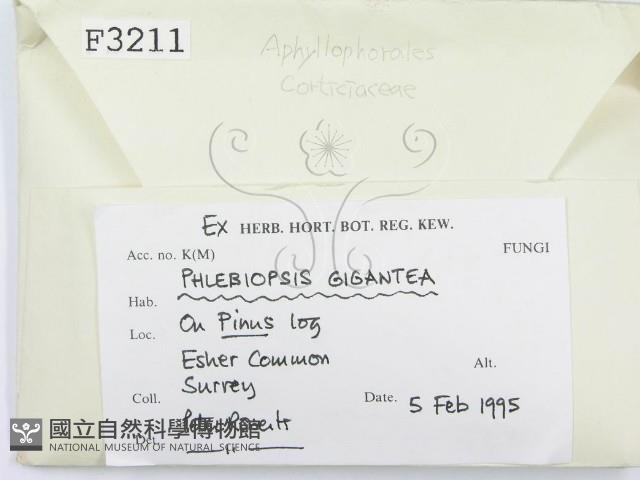 F3211
Aphyllophorales
Corticiaceae
Ex HERB. HORT. BOT. REG. KEW.
Acc. no. K(M) FUNGI
PHLEBIOPSIS GIGANTEA
Hab. On Pinus log
Loc. Esher Common Alt.
Surrey
Coll. Date. 5 Feb 1995
Det.
國立自然科學博物館
NATIONAL MUSEUM OF NATURAL SCIENCE